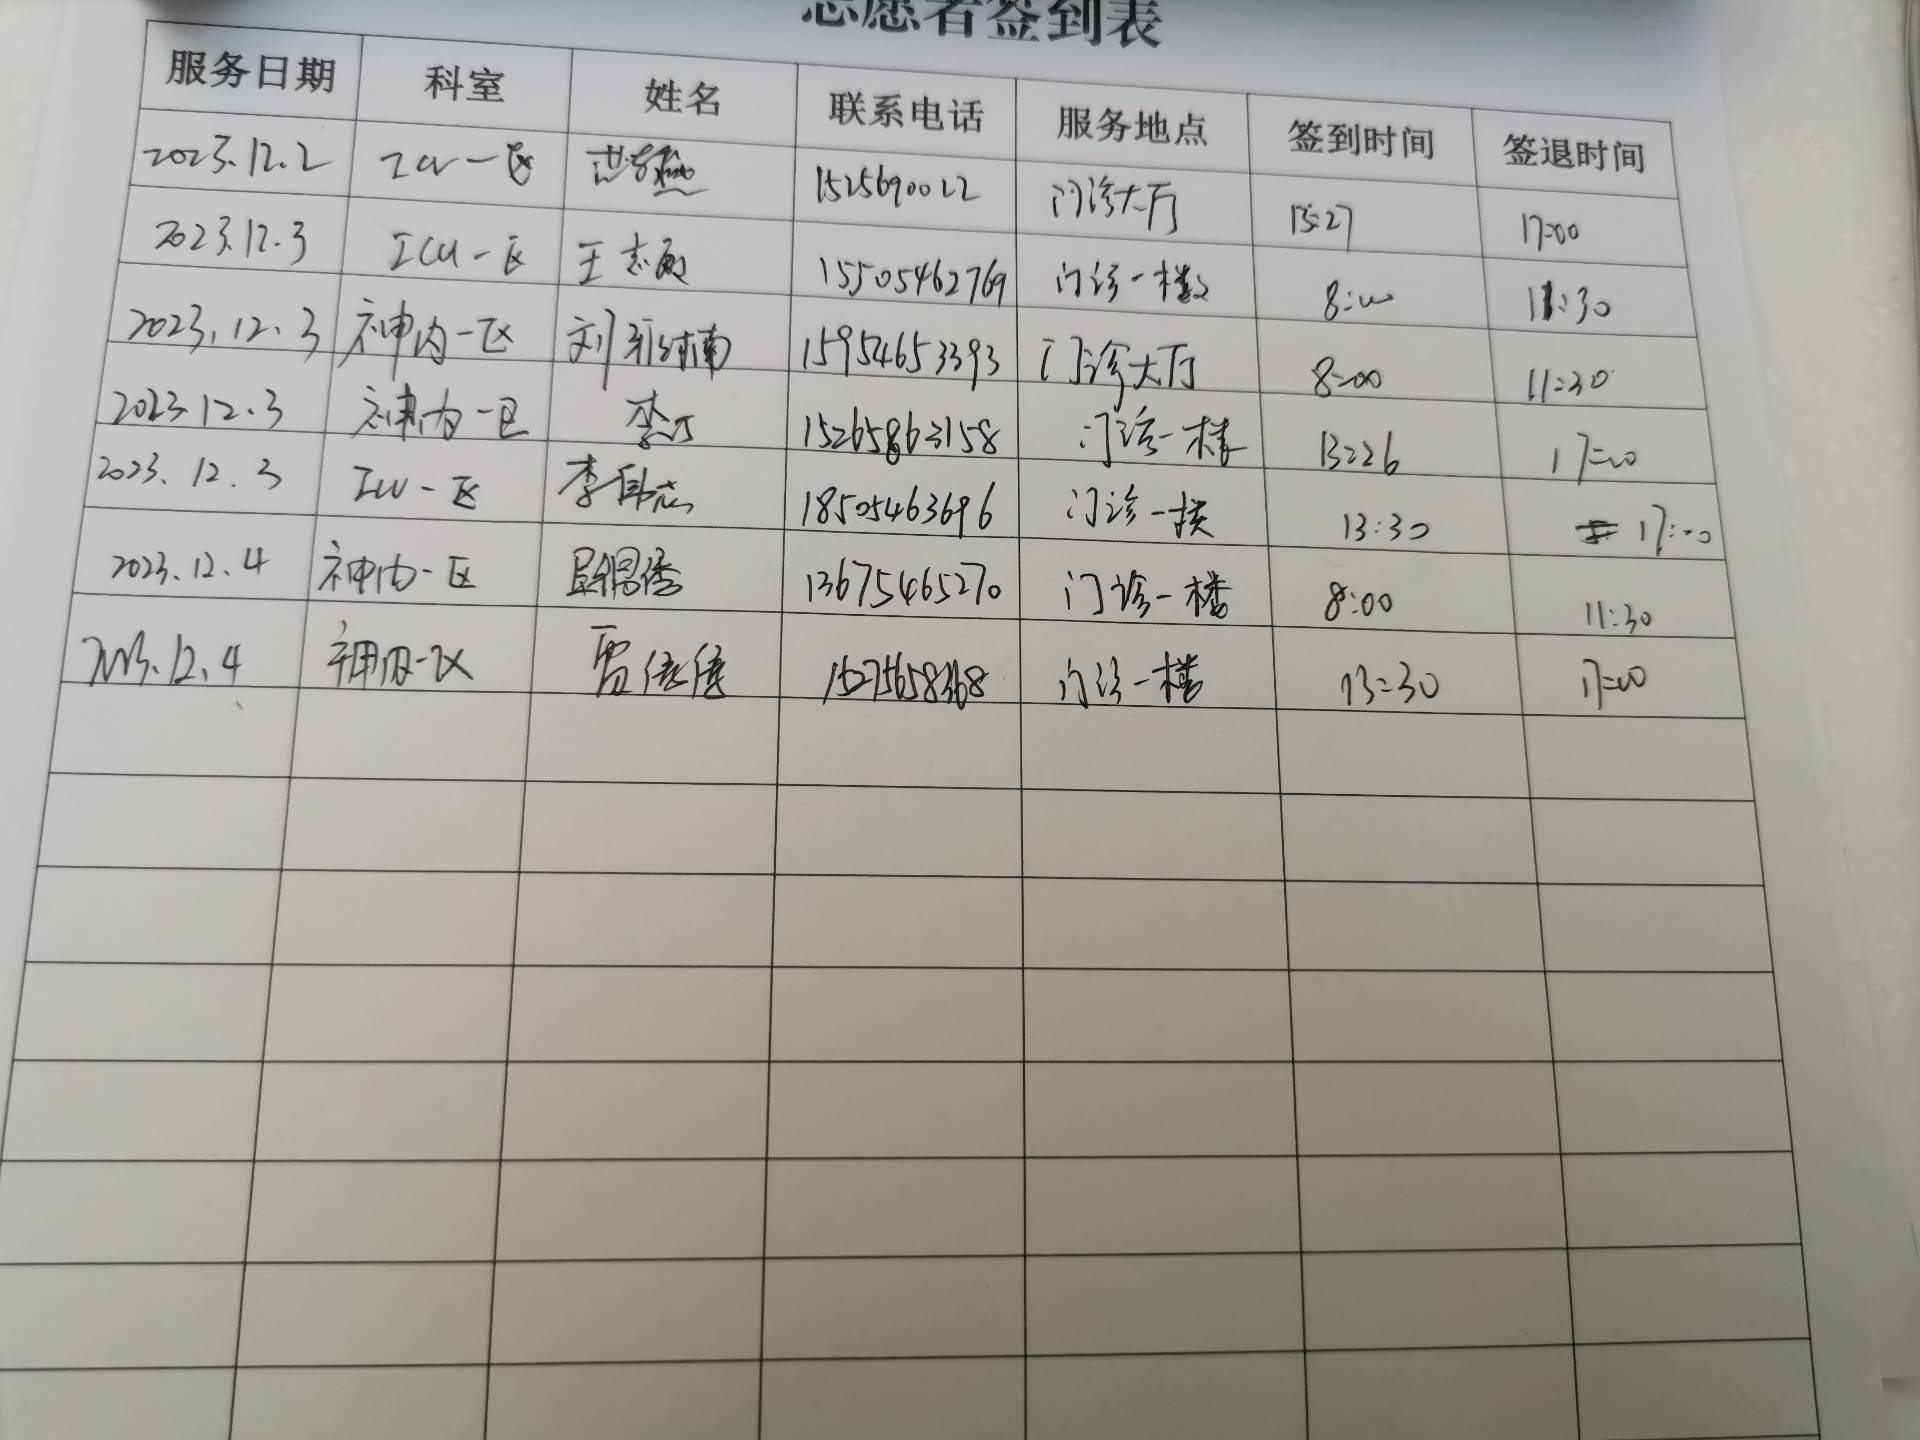 志愿者签到表
服务日期 科室 姓名 联系电话 服务地点 签到时间 签退时间
2023.12.2 ICU一区 1525690022 门诊大厅 13:27 17:00
2023.12.3 ICU一区 王志敏 15505462769 门诊一楼 8:00 11:30
2023.12.3 神内一区 刘 楠 15954653393 门诊大厅 8:00 11:30
2023.12.3 神内一区 15265863158 门诊一楼 13:26 17:00
2023.12.3 ICU一区 李 18505463696 门诊一楼 13:30 17:00
2023.12.4 神内一区 13675465270 门诊一楼 8:00 11:30
2023.12.4 神内一区 贾 15275658368 门诊一楼 13:30 17:00